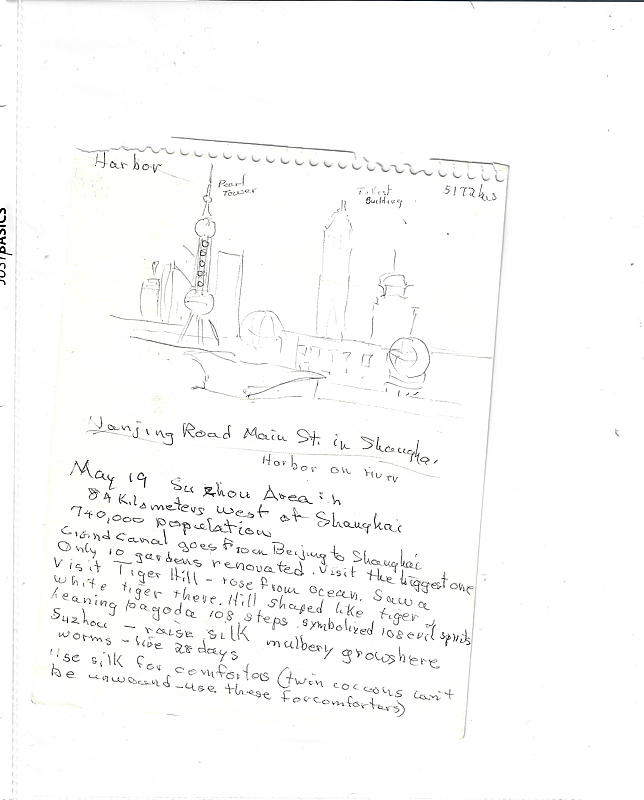 Harbor
Pearl
Tower
Tallest
Building
JUST BASICS
Nanjing Road Main St. in Shanghai
Harbor on River
May 19 Suzhou Area is
84 Kilometers west of Shanghai
740,000 population
Grand Canal goes from Beijing to Shanghai
Only 10 gardens renovated. Visit the biggest one
Visit Tiger Hill - rose from ocean. Saw a
white tiger there. Hill shaped like tiger
Leaning pagoda 108 steps symbolized 108 evil spirits
Suzhou - raise silk mulbery grows here
worms - live 28 days
Use silk for comfortos (twin cocoons can't
be unwound - use these for comforters)